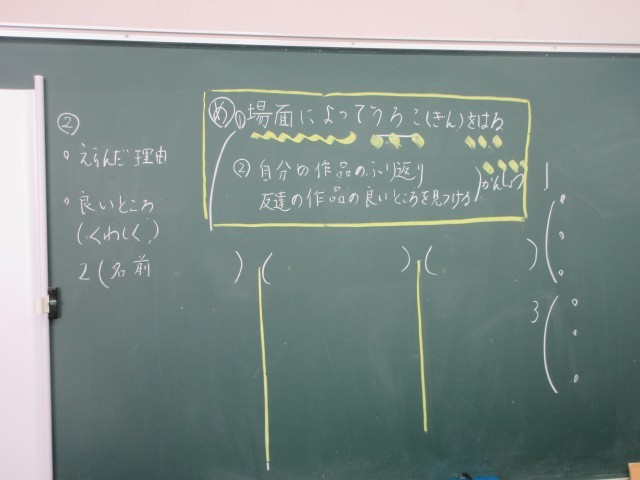 め ① 場面によってうろこ(きん)をはる
② 自分の作品のふり返り
友達の作品の良いところを見つける かんしょう
②
。えらんだ理由
。良いところ
(くわしく)
2(名前 )
( )
( )
1
3